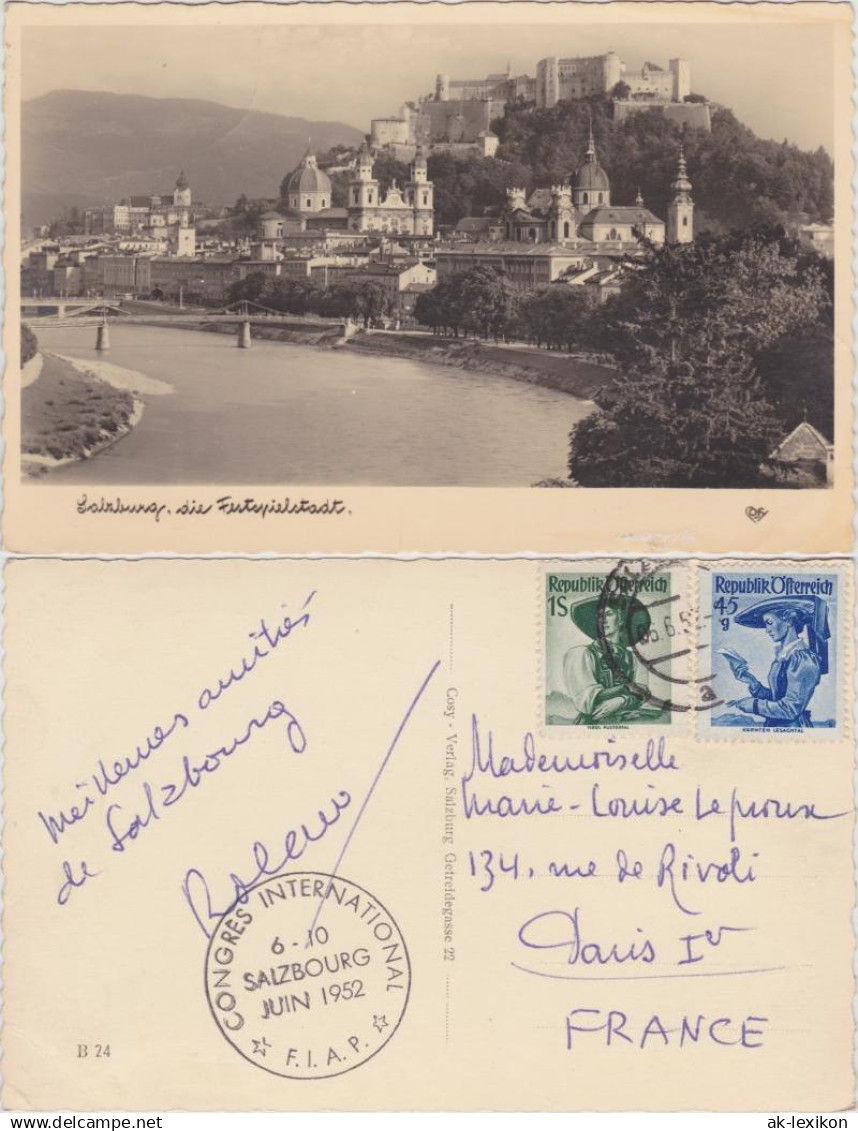 Salzburg, die Festspielstadt.
Republik Österreich
1S
TIROL PUSTERTAL
Republik Österreich
45
g
KÄRNTEN LESACHTAL
06.6.5
a
Meilleures amitiés
de Salzbourg
CONGRES INTERNATIONAL
6-10
SALZBOURG
JUIN 1952
F.I.A.P.
B 24
Cosy - Verlag, Salzburg Getreidegasse 22
Mademoiselle
Marie-Louise Leproux
134, rue de Rivoli
Paris Ier
FRANCE
delcampe.net
ak-lexikon